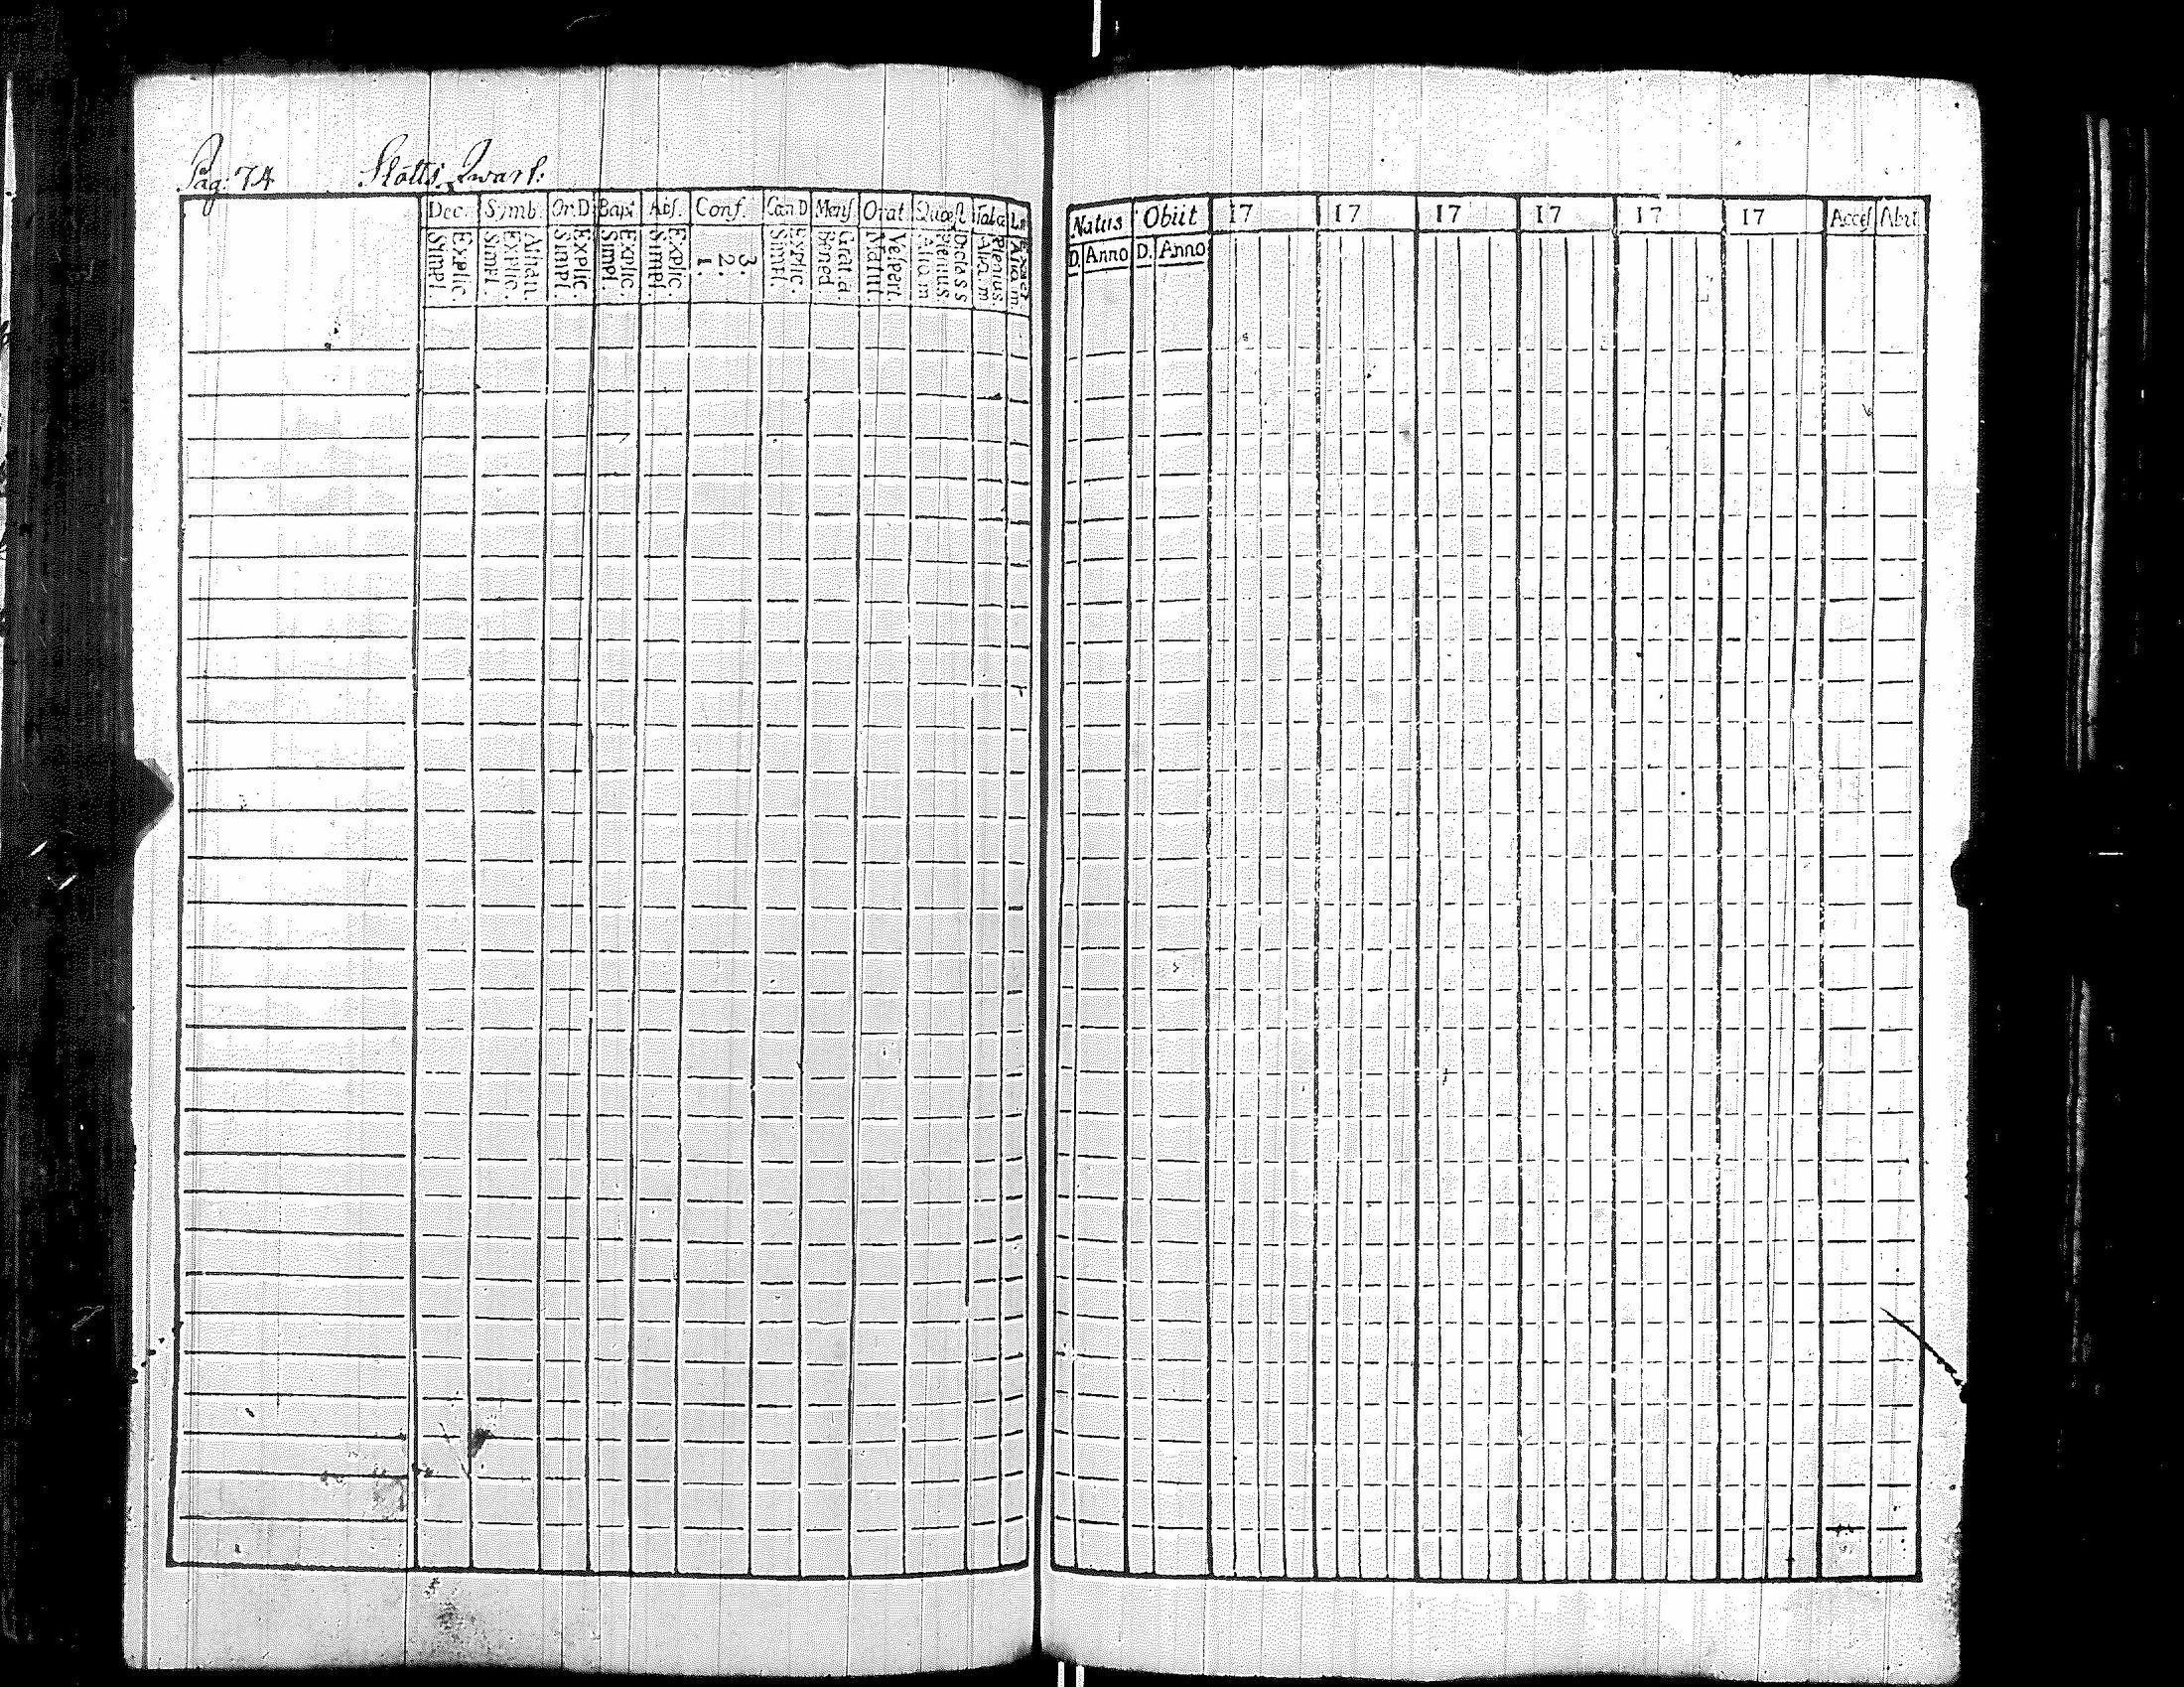 Pag: 74 Slotts Qwart:
Dec. Symb. Or.D Bapt Abs. Conf. Can D Mens Orat. Quæst Taba
Explic. Simpl. Athan. Explic. Simpl. Explic. Simpl. Explic. Simpl. Explic. Simpl. 3. 2. 1. Explic. Simpl. Grat.a. Bened Vespert. Matut. D.class Plenius. Aliq.m Plenius. Aliq.m Aliq.m.
Natus Obiit 17 17 17 17 17 17 Access Abit
D. Anno D. Anno